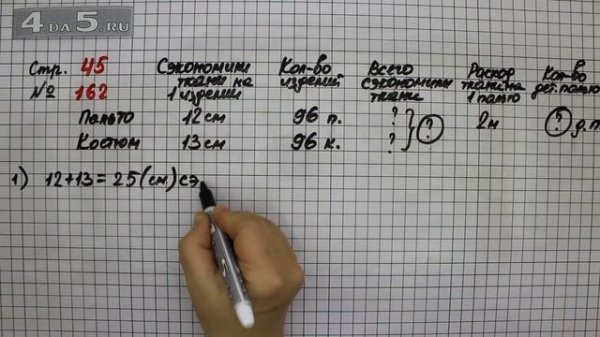 4 DA 5.RU
Стр. 45
№ 162
Сэкономили ткани на 1 изделии
Кол-во изделий
Всего сэкономили ткани
Расход ткани на 1 пальто
Кол-во дет. пальто
Пальто 12 см 96 п. ? ? 2м ? д.п.
Костюм 13 см 96 к. ?
1) 12+13=25(см) сэ